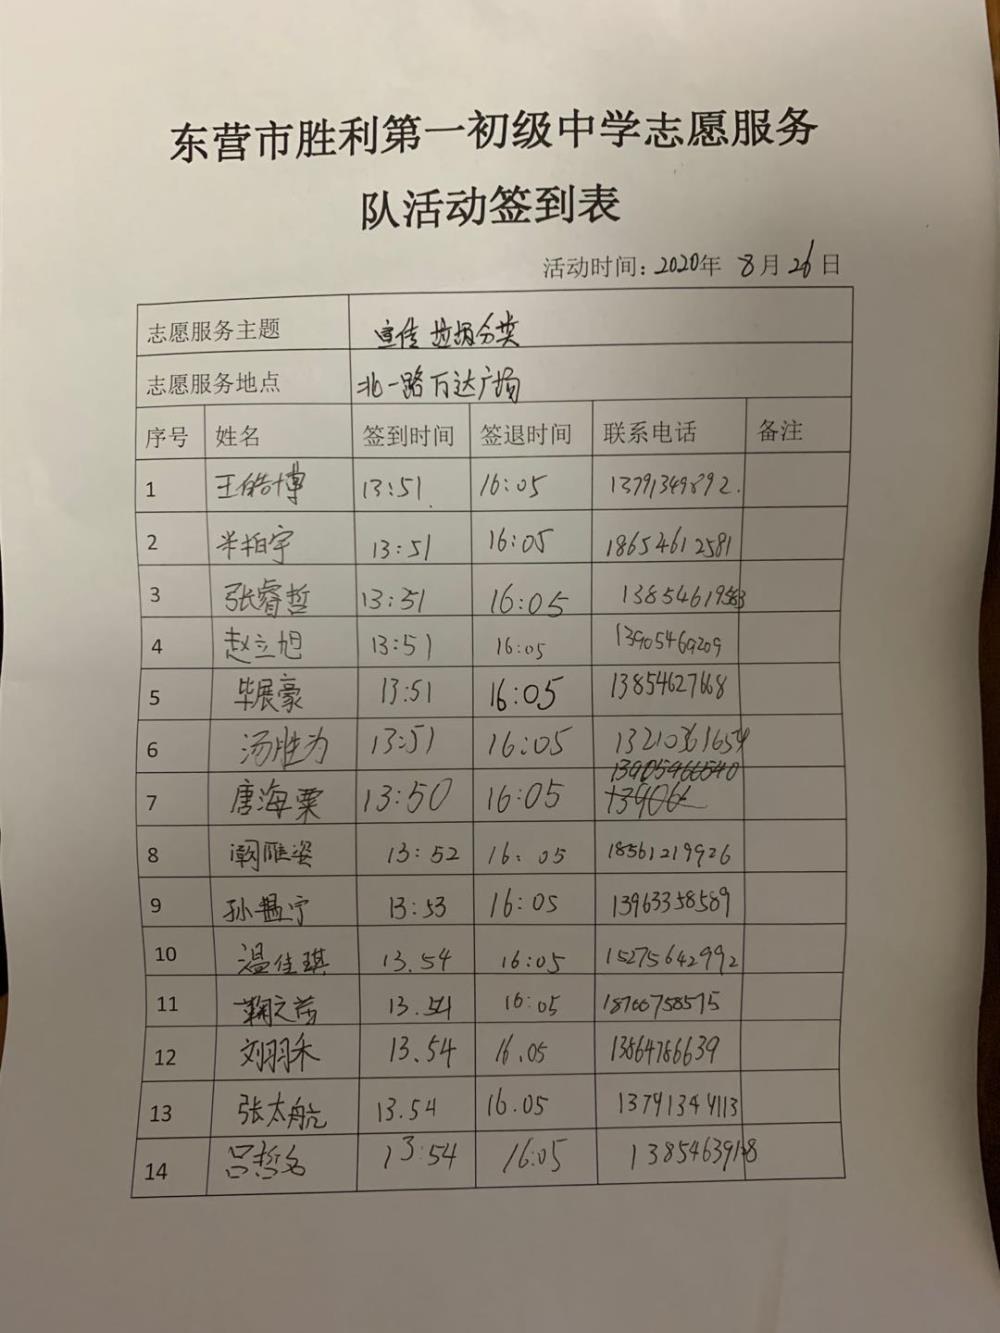 东营市胜利第一初级中学志愿服务
队活动签到表
活动时间：2020年 8月26日
志愿服务主题 宣传垃圾分类
志愿服务地点 北一路万达广场
序号 姓名 签到时间 签退时间 联系电话 备注
1 王皓博 13:51 16:05 13791349892.
2 米柏宇 13:51 16:05 18654612581
3 张睿哲 13:51 16:05
4 赵立旭 13:51 16:05 13905469209
5 毕展豪 13:51 16:05 13854627668
6 汤胜为 13:51 16:05 13210361654
7 唐海粟 13:50 16:05 13905466540
8 13:52 16:05 18561219926
9 13:53 16:05 13963358589
10 温佳琪 13.54 16:05 15275642992
11 13.54 16:05 18766758575
12 刘羽禾 13.54 16.05 13864786639
13 张太航 13.54 16.05 13791344113
14 吕哲名 13:54 16:05